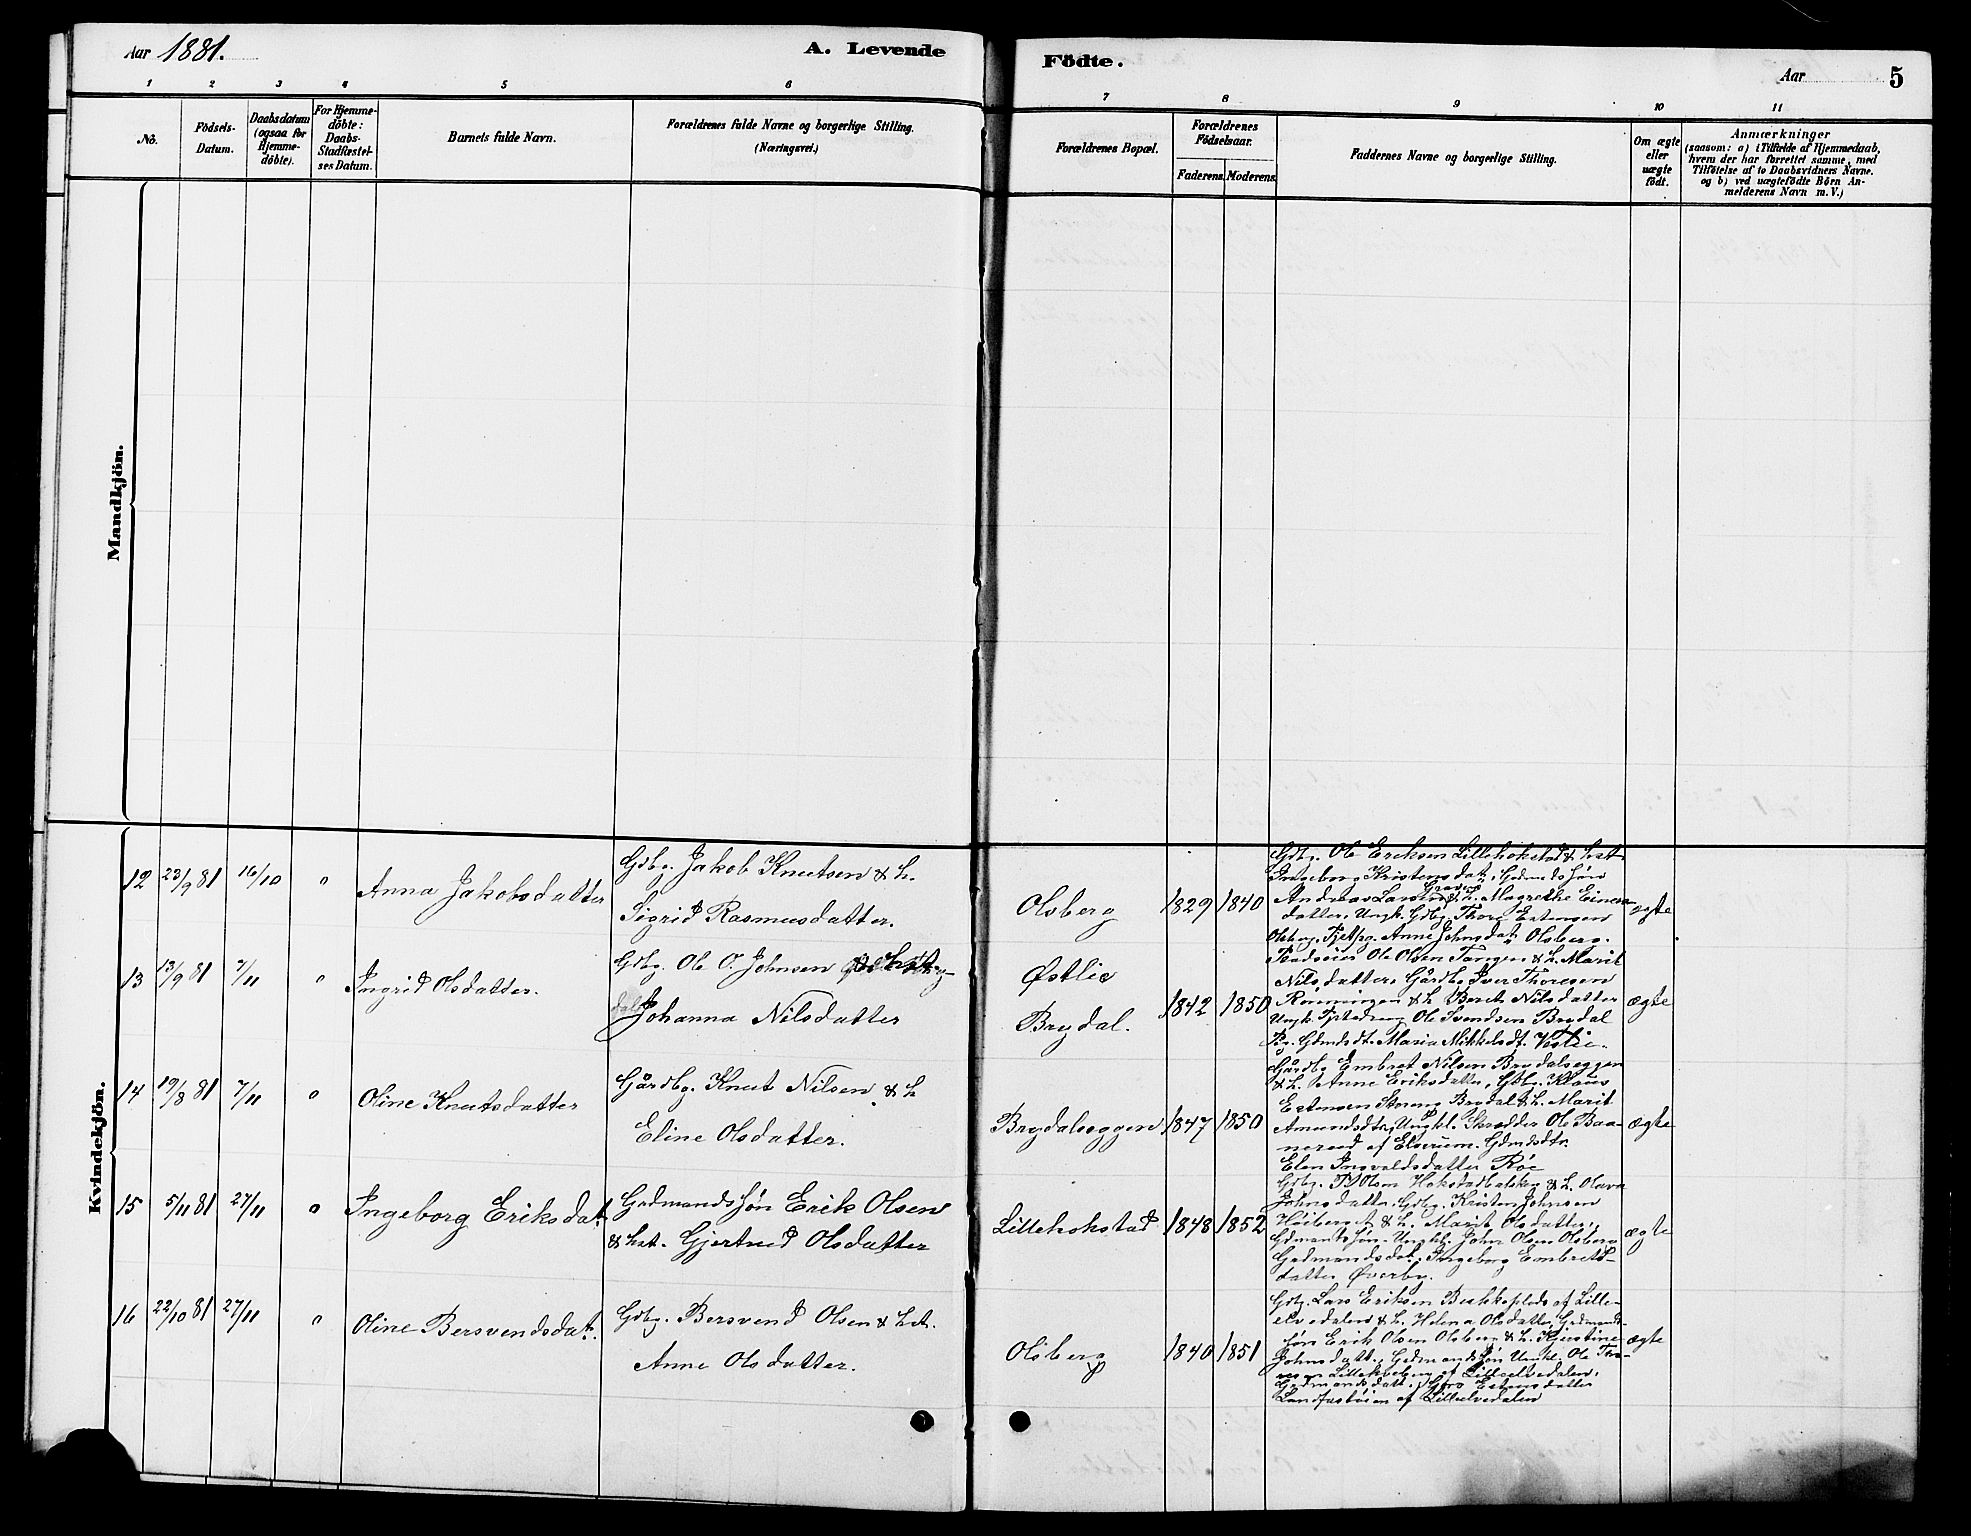 Aar 1881.
A. Levende
Födte.
Aar
5
1 2 3 4 5 6 7 8 9 10 11
No.
Födsels-
Datum.
Daabsdatum
(ogsaa for
Hjemme-
döbte).
For Hjemme-
döbte:
Daabs-
Stadfæstel-
ses Datum.
Barnets fulde Navn.
Forældrenes fulde Navne og borgerlige Stilling.
(Næringsvei.)
Forældrenes Bopæl.
Forældrenes
Födselsaar.
Faderens. Moderens.
Faddernes Navne og borgerlige Stilling.
Om ægte
eller
uægte
födt.
Anmærkninger
(saasom: a) i Tilfælde af Hjemmedaab,
hvem der har forrettet samme, med
Tilföielse af to Daabsvidners Navne.
og b) ved uægtefödte Börn An-
melderens Navn m.V.)
Mandkjön.
Kvindekjön.
12 23/9 81 16/10 " Anna Jakobsdatter
Gdbg. Jakob Knutsen & h.
Sigrid Rasmusdatter.
Olsberg 1829 1840
Gdbg. Ole Eriksen Lillehokstad & hst.
Ingeborg Kristensdat., Gdmdssøn
Andreas Larsen & h. Magrethe Einers-
datter, Ungk. Gdbg. Thore Estensen
Olsberg, Anne Johnsdat. Olsberg.
ægte
13 13/9 81 7/11 " Ingrid Olsdatter.
Gdbg. Ole O. Johnsen
Johanna Nilsdatter
Østlie
Brydal.
1842 1850
Ole Olsen Tangen & h. Marit
Nilsdatter, Gårdbg. Iver Thoresen
Rønningen & h. Berit Nilsdatter
Ungk. Ole Svendsen Brydal
Pg. Gdmdsdt. Maria Mikkelsdt. Vestlie.
ægte
14 19/8 81 7/11 " Oline Knutsdatter
Gårdbg. Knut Nilsen & h.
Eline Olsdatter.
Brydalseggen 1847 1850
Gårdbg. Embret Nilsen Brydalseggen
& h. Anne Eriksdatter, Gdbg. Klaus
Estensen Brydal & h. Marit
Amundsdtr, Ungkl. Skrædder Ole Baa-
nerud af Elverum. Gdmdsdtr.
Elen Ingvaldsdatter Røe
ægte
15 5/11 81 27/11 " Ingeborg Eriksdat.
Grdmandssøn Erik Olsen
& hst. Gjertrud Olsdatter
Lillehokstad 1848 1852
Gdbg. P. Olsen Hokstadbakken & h. Olava
Johnsdatter, Gdbg. Kristen Johnsen
Høiberget & h. Marit Olsdatter,
Gdmandssøn Ungkl. John Olsen Olsberg
Grdmandsdat. Ingeborg Embrets-
datter Øverby.
ægte
16 22/10 81 27/11 " Oline Bersvendsdat.
Gdbg. Bersvend Olsen & hst.
Anne Olsdatter.
Olsberg 1840 1851
Gdbg. Lars Eriksen af Lille-
elvedalen & h. Helena Olsdatter, Grdmands-
søn Erik Olsen Olsberg & h. Kjerstine
Johnsdatt., Grdmandssøn Ungkl. Ole Tho-
af Lilleelvedalen,
Grdmandsdatt. Estensdatter
af Lilleelvedalen
ægte